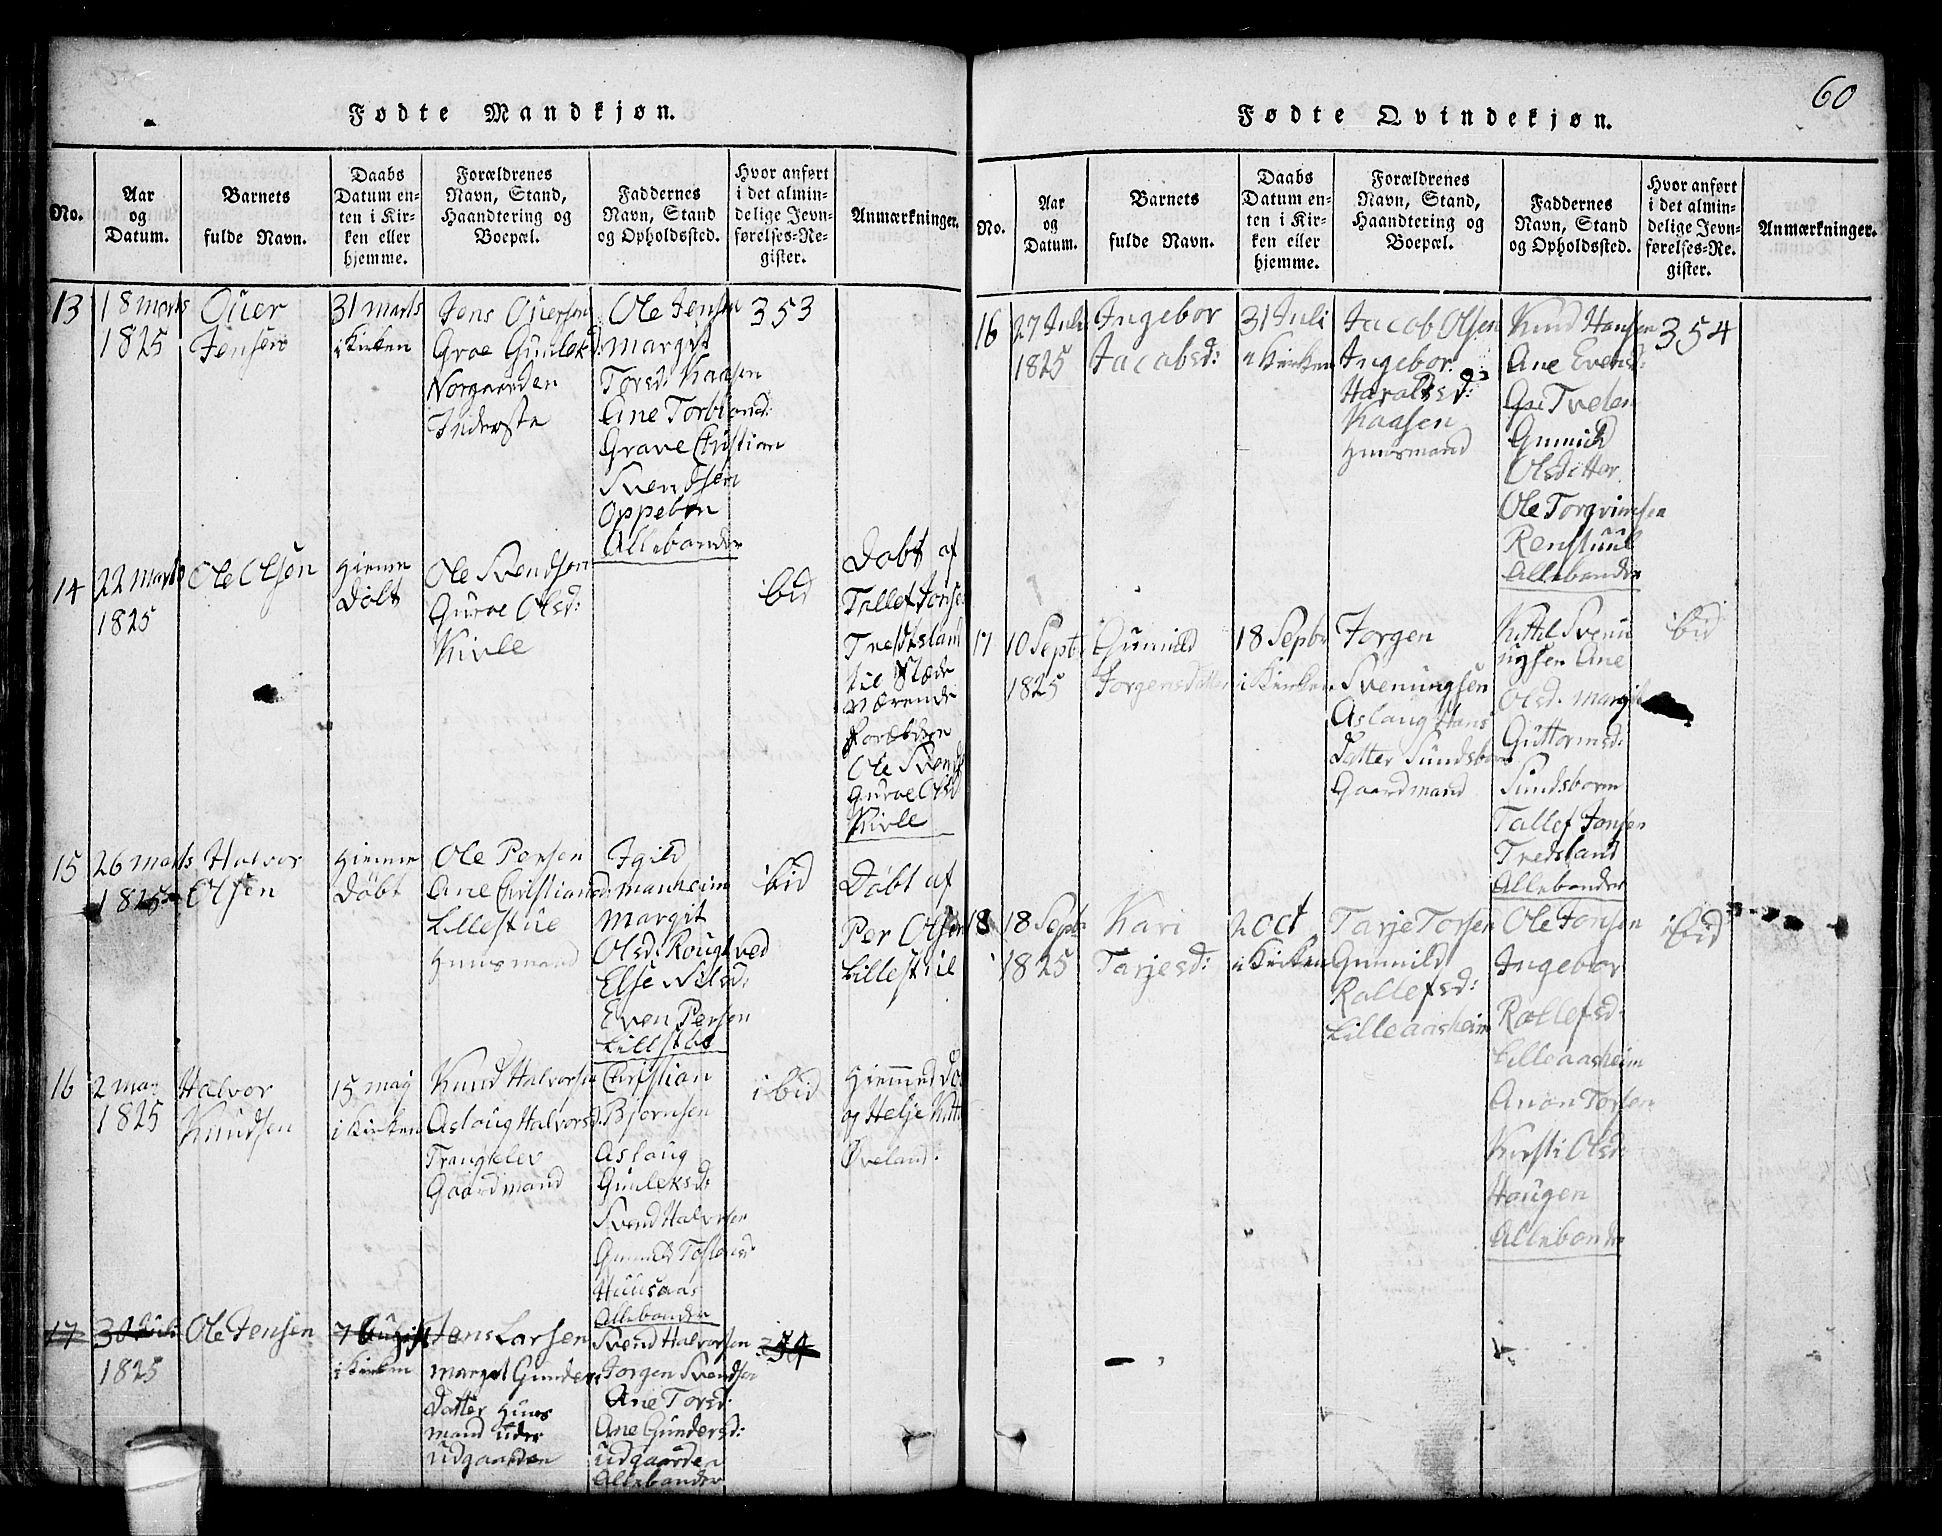 60
Fødte Mandkjøn.
No.
Aar
og
Datum.
Barnets
fulde Navn.
Daabs
Datum en-
ten i Kir-
ken eller
hjemme.
Forældrenes
Navn, Stand,
Haandtering og
Boepæl.
Faddernes
Navn, Stand
og Opholdssted.
Hvor anført
i det almin-
delige Jevn-
førelses-Re-
gister.
Anmærkninger.
13
18 marts
1825
Ouer
Jensen
31 marts
i Kirken
Jens Ouersen
Groe Gunleksd:
Norgaarden
Inderste
Ole Jensen
margit
Torsd: Kaasen
Ane Torbiønd:
Grave Christian
Svendsen
Oppeboen
Allebander
353
14
22 marts
1825
Ole Olsen
Hiemme
Døbt
Ole Svendsen
Gurae Olsd:
Kivle
ibid
Døbt af
Tallef Jonse
Tredtsland
til Stæde
værende
Forældren
Ole Svends
Guroe Olsd
Kivle
15
26 marts
1825
Halvor
Olsen
Hiemme
Døbt
Ole Persen
Ane Christiand:
Lillestue
Huusmand
Igild
manheim
margit
Olsd: Rougtved
Else Nilsd:
Even Persen
Lillestue
ibid
Døbt af
Per Olsen
Lillestue
16
2 may
1825
Halvor
Knudsen
15 may
i Kirken
Knud Halvorsen
Aslaug Halvorsd:
Trangklev
Gaardmand
Christian
Bjørnsen
Aslaug
Gunleksd:
Svend Halvorsen
Gunnild Tostensd:
Huusaas
Allebander
ibid
Hiemmed
og Helje
Øveland:
17
30
1825
Ole Jensen
7 August
i Kirken
Jens Larsen
margit Gunders
Datter Huus
mand Uder
Udgaarden
Svend Halvorsen
Jorgen Svendsen
Ane Torsd:
Ane Gundersd:
Udgaarden
Allebander
354
Fødte Qvindekjøn.
No.
Aar
og
Datum.
Barnets
fulde Navn.
Daabs
Datum en-
ten i Kir-
ken eller
hjemme.
Forældrenes
Navn, Stand,
Haandtering og
Boepæl.
Faddernes
Navn, Stand
og Opholdssted.
Hvor anført
i det almin-
delige Jevn-
førelses-Re-
gister.
Anmærkninger.
16
27 Juli
1825
Ingebor
Jacobsd:
31 Juli
i Kirken
Jacob Olsen
Ingebor
Haraldsd:
Kaasen
Huusmand
Knud Hansen
Ane Evensd:
Tveden
Gunnild
Olsditter
Ole Torgrimsen
Renstuul
Allebander
354
17
10 Septbr
1825
Gunnild
Jorgensdatter
18 Septbr
i Kirken
Jorgen
Svenungsen
Aslaug Hans
Datter Sundsbarm
Gaardmand
Kittil Svenu
ngsen Ane
Olsd. margit
Guttormsd:
Sundsbarm
Tallef Jonsen
Tredsland
Allebander
ibid
18
18 Septbr
1825
Kari
Tarjesd:
2 oct
i Kirken
Tarje Torsen
Gunnild
Rallefsd:
Lilleaasheim
Ole Jonsen
Ingebor
Rallefsd:
Lilleaasheim
Anon Torsen
Kirsti Olsd:
Haugen
Allebander
ibid